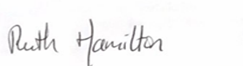 Ruth Hamilton